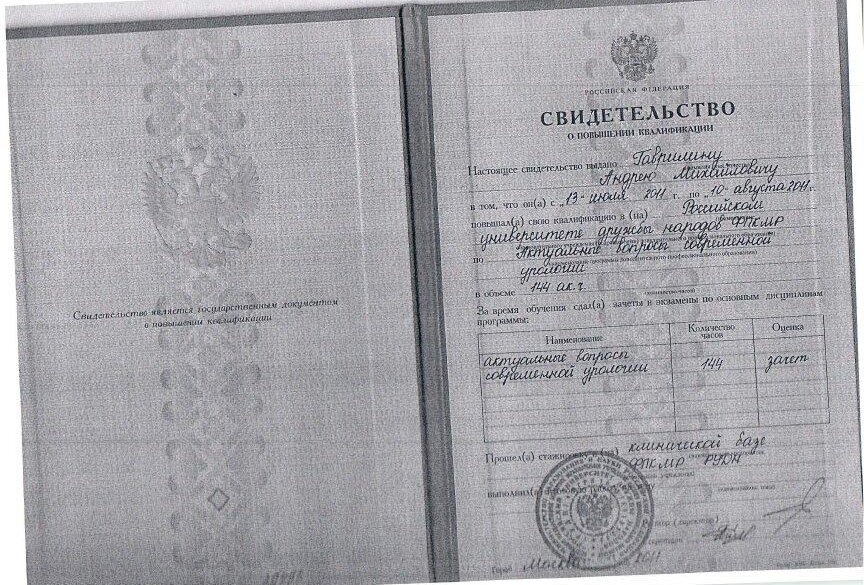 Свидетельство является государственным документом
о повышении квалификации
РОССИЙСКАЯ ФЕДЕРАЦИЯ
СВИДЕТЕЛЬСТВО
О ПОВЫШЕНИИ КВАЛИФИКАЦИИ
Настоящее свидетельство выдано Гаврилину
Андрею Михайловичу
в том, что он(а) с „13" июля 2011 г. по „10" августа 2011г.
повышал(а) свою квалификацию в (на) Российском
университете дружбы народов ФПКМР
по Актуальные вопросы современной
урологии
в объеме 144 ак.ч.
количество часов
За время обучения сдал(а) зачеты и экзамены по основным дисциплинам
программы:
Наименование Количество часов Оценка
актуальные вопросы
современной урологии 144 зачет
Прошел(а) стажировку в (на) клинической базе
ФПКМР РУДН
выполнил(а)
Город Москва 2011